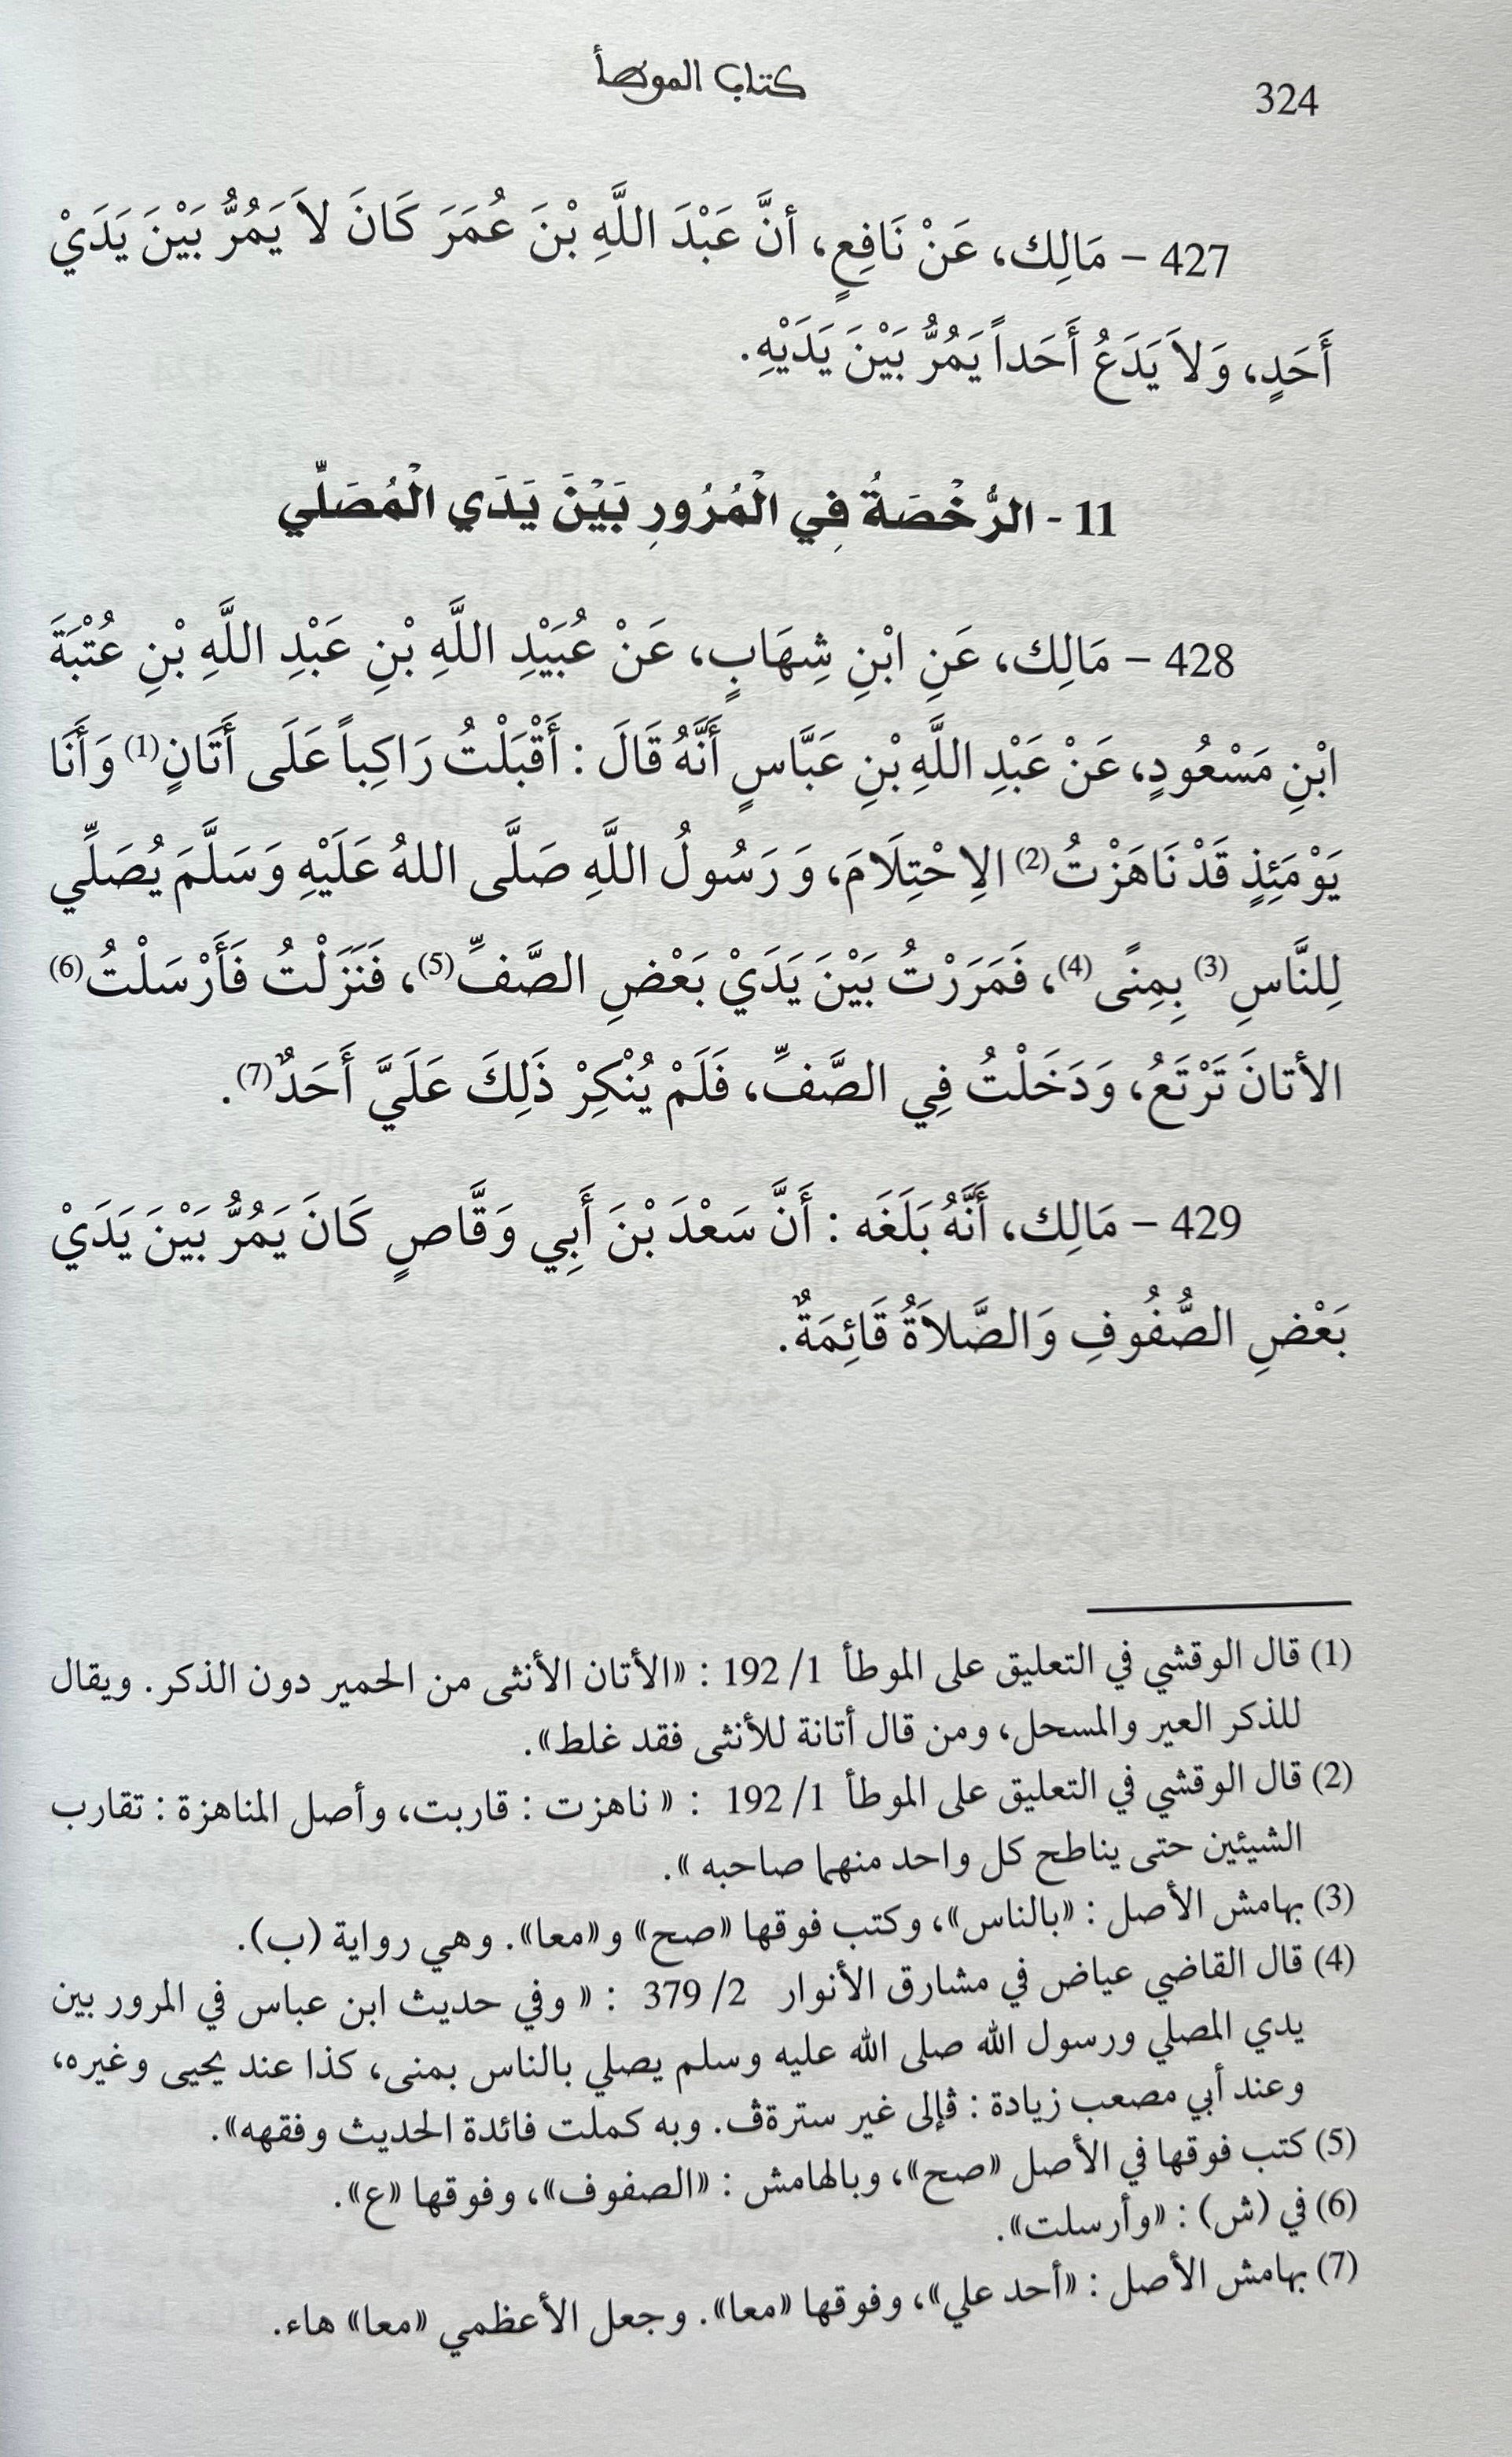 324
كتاب الموطأ
427 – مَالِك، عَنْ نَافِعٍ، أنَّ عَبْدَ اللَّهِ بْنَ عُمَرَ كَانَ لاَ يَمُرُّ بَيْنَ يَدَيْ
أَحَدٍ، وَلاَ يَدَعُ أَحَداً يَمُرُّ بَيْنَ يَدَيْهِ.
11 - الرُّخْصَةُ فِي الْمُرُورِ بَيْنَ يَدَي الْمُصَلِّي
428 – مَالِك، عَنِ ابْنِ شِهَابٍ، عَنْ عُبَيْدِ اللَّهِ بْنِ عَبْدِ اللَّهِ بْنِ عُتْبَةَ
ابْنِ مَسْعُودٍ، عَنْ عَبْدِ اللَّهِ بْنِ عَبَّاسٍ أَنَّهُ قَالَ : أَقْبَلْتُ رَاكِباً عَلَى أَتَانٍ(1) وَأَنَا
يَوْمَئِذٍ قَدْ نَاهَزْتُ(2) الِاحْتِلَامَ، وَرَسُولُ اللَّهِ صَلَّى اللهُ عَلَيْهِ وَسَلَّمَ يُصَلِّي
لِلنَّاسِ(3) بِمِنًى(4)، فَمَرَرْتُ بَيْنَ يَدَيْ بَعْضِ الصَّفِّ(5)، فَنَزَلْتُ فَأَرْسَلْتُ(6)
الأتانَ تَرْتَعُ، وَدَخَلْتُ فِي الصَّفِّ، فَلَمْ يُنْكِرْ ذَلِكَ عَلَيَّ أَحَدٌ(7).
429 – مَالِك، أَنَّهُ بَلَغَه : أَنَّ سَعْدَ بْنَ أَبِي وَقَّاصٍ كَانَ يَمُرُّ بَيْنَ يَدَيْ
بَعْضِ الصُّفُوفِ وَالصَّلاَةُ قَائِمَةٌ.
(1) قال الوقشي في التعليق على الموطأ 1/ 192 : «الأتان الأنثى من الحمير دون الذكر. ويقال
للذكر العير والمسحل، ومن قال أتانة للأنثى فقد غلط».
(2) قال الوقشي في التعليق على الموطأ 1/ 192 : « ناهزت : قاربت، وأصل المناهزة : تقارب
الشيئين حتى يناطح كل واحد منهما صاحبه ».
(3) بهامش الأصل : «بالناس»، وكتب فوقها «صح» و«معا». وهي رواية (ب).
(4) قال القاضي عياض في مشارق الأنوار 2/ 379 : « وفي حديث ابن عباس في المرور بين
يدي المصلي ورسول الله صلى الله عليه وسلم يصلي بالناس بمنى، كذا عند يحيى وغيره،
وعند أبي مصعب زيادة : ڤإلى غير سترةڤ. وبه كملت فائدة الحديث وفقهه».
(5) كتب فوقها في الأصل «صح»، وبالهامش : «الصفوف»، وفوقها «ع».
(6) في (ش) : «وأرسلت».
(7) بهامش الأصل : «أحد علي»، وفوقها «معا». وجعل الأعظمي «معا» هاء.